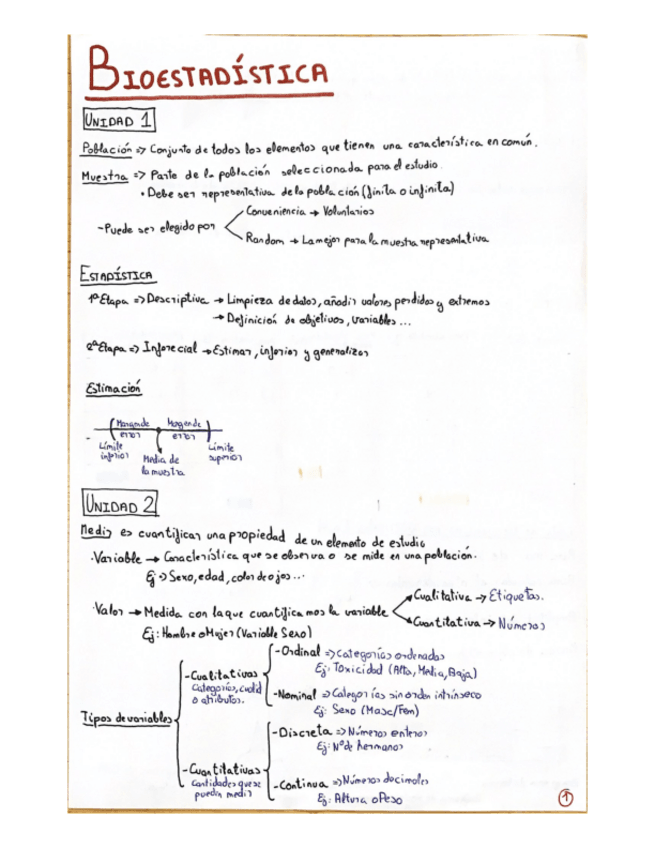 BIOESTADÍSTICA
UNIDAD 1
Población => Conjunto de todos los elementos que tienen una característica en común.
Muestra => Parte de la población seleccionada para el estudio.
• Debe ser representativa de la población (finita o infinita)
- Puede ser elegido por
Conveniencia → Voluntarios
Random → La mejor para la muestra representativa
ESTADÍSTICA
1ª Etapa => Descriptiva → Limpieza de datos, añadir valores perdidos y extremos
→ Definición de objetivos, variables ...
2ª Etapa => Inferecial → Estimar, inferior y generalizar
Estimación
Margen de error
Margen de error
Límite inferior
Media de la muestra
Límite superior
UNIDAD 2
Medir es cuantificar una propiedad de un elemento de estudio
· Variable → Característica que se observa o se mide en una población.
Ej → Sexo, edad, color de ojos...
· Valor → Medida con la que cuantificamos la variable
Cualitativa → Etiquetas.
Cuantitativa → Números
Ej: Hombre o Mujer (Variable Sexo)
Tipos de variables
- Cualitativas
Categorías, cualid
o atributos.
- Ordinal => Categorías ordenadas
Ej: Toxicidad (Alta, Media, Baja)
- Nominal => Categorías sin orden intrínseco
Ej: Sexo (Masc/Fem)
- Cuantitativas
Cantidades que se
puedin medir
- Discreta => Números enteros
Ej: Nº de hermanos
- Continua => Números decimales
Ej: Altura o Peso
1